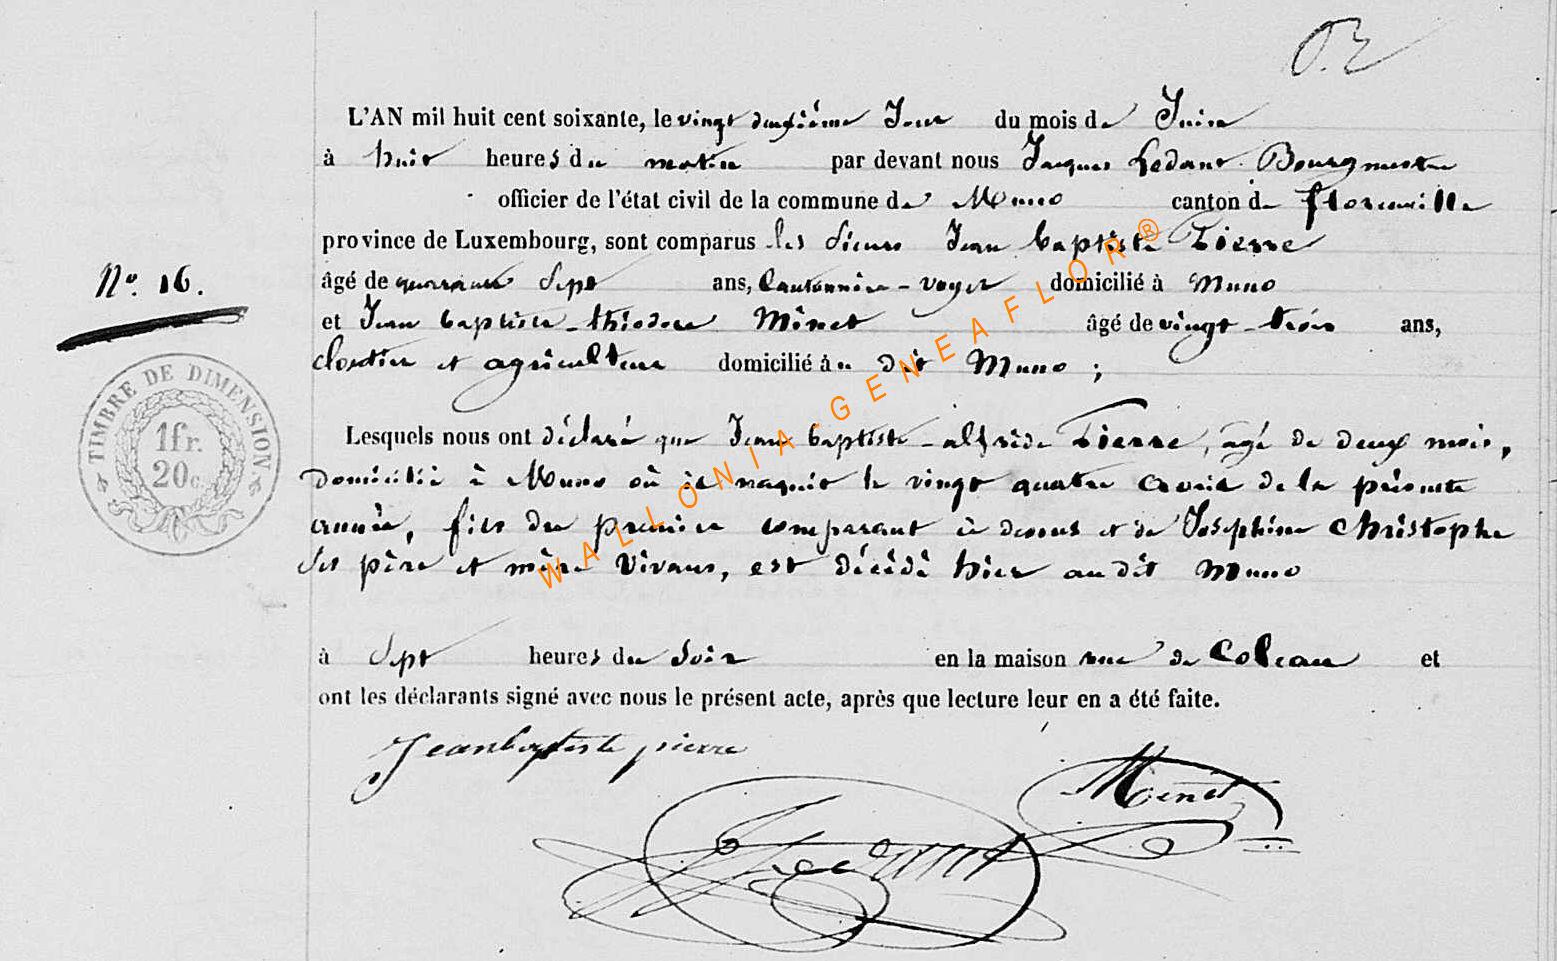 L'AN mil huit cent soixante, le vingt deuxième Jour du mois de Juin
à huit heures du matin par devant nous Jacques Ledant Bourgmestre
officier de l'état civil de la commune de Muno canton de florenville
province de Luxembourg, sont comparus les Sieurs Jean baptiste Pierre
No. 16.
âgé de quarante Sept ans, Cantonnier-voyer domicilié à Muno
et Jean baptiste-théodore Minet âgé de vingt-trois ans,
cloutier et agriculteur domicilié au dit Muno ;
TIMBRE DE DIMENSION
1fr.
20c.
Lesquels nous ont déclaré que Jean baptiste-alfrède Pierre, âgé de deux mois,
domicilié à Muno où il naquit le vingt quatre avril de la présente
année, fils du premier comparant ci dessus et de Joséphine Christophe
Ses père et mère vivans, est décédé hier audit Muno
à Sept heures du Soir en la maison rue de Coleau et
ont les déclarants signé avec nous le présent acte, après que lecture leur en a été faite.
Jeanbaptiste pierre
Minet
J Ledant
WALLONIA-GENEAFLOR®